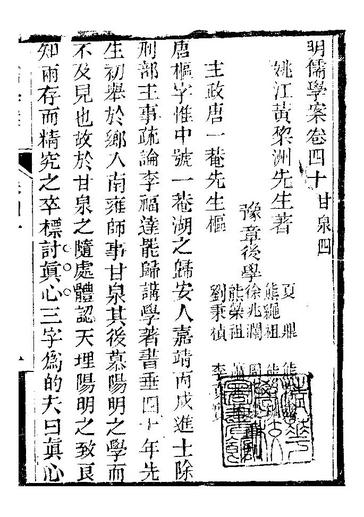 明儒學案卷四十 甘泉四
姚江黃黎洲先生著
豫章後學
夏
熊繩祖
徐兆瀾
熊榮祖
劉秉楨
主政唐一菴先生樞
唐樞字惟中號一菴湖之歸安人嘉靖丙戌進士除
刑部主事疏論李福達罷歸講學著書垂四十年先
生初舉於鄉入南雍師事甘泉其後慕陽明之學而
不及見也故於甘泉之隨處體認天理陽明之致良
知兩存而精究之卒標討眞心三字爲的夫曰眞心